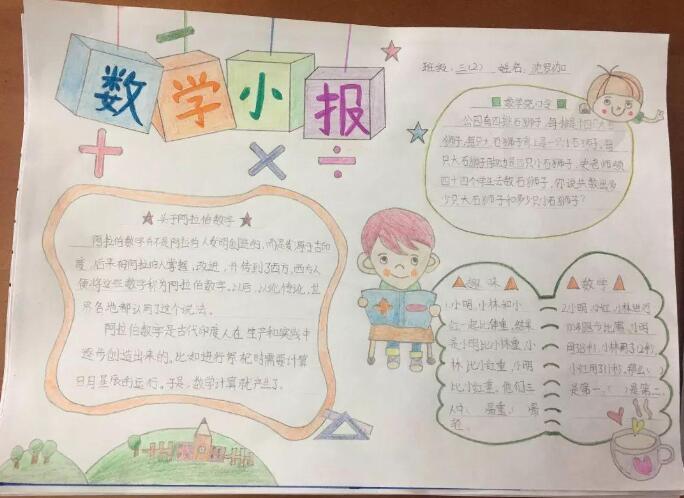 数学小报
班级:三(2) 姓名:
数学绕口令
公园有四排石狮子,每排是十四只大石
狮子,每只大石狮子背上是一只小石狮子,每
只大石狮子脚边是四只小石狮子,史老师领
四十四个学生去数石狮子,你说共数出多
少只大石狮子和多少只小石狮子?
关于阿拉伯数字
阿拉伯数字并不是阿拉伯人发明创造的,而是发源于古印
度,后来被阿拉伯人掌握,改进,并传到了西方,西方人
便将这些数字称为阿拉伯数字。以后,以讹传讹,世
界各地都认同了这个说法。
阿拉伯数字是古代印度人在生产和实践中
逐步创造出来的。比如进行祭祀时需要计算
日月星辰的运行。于是,数学计算就产生了。
趣味
1.小明,小林和小
红一起比体重,结果
是小明比小林重,小
林比小红重,小明
比小红重。他们三
人中( )最重,( )最
轻。
数学
2.小明,小红,小林进行
跑步比赛,小明
用 小林用了12秒,
小红用 秒,那么( )
是第一,( )是第二